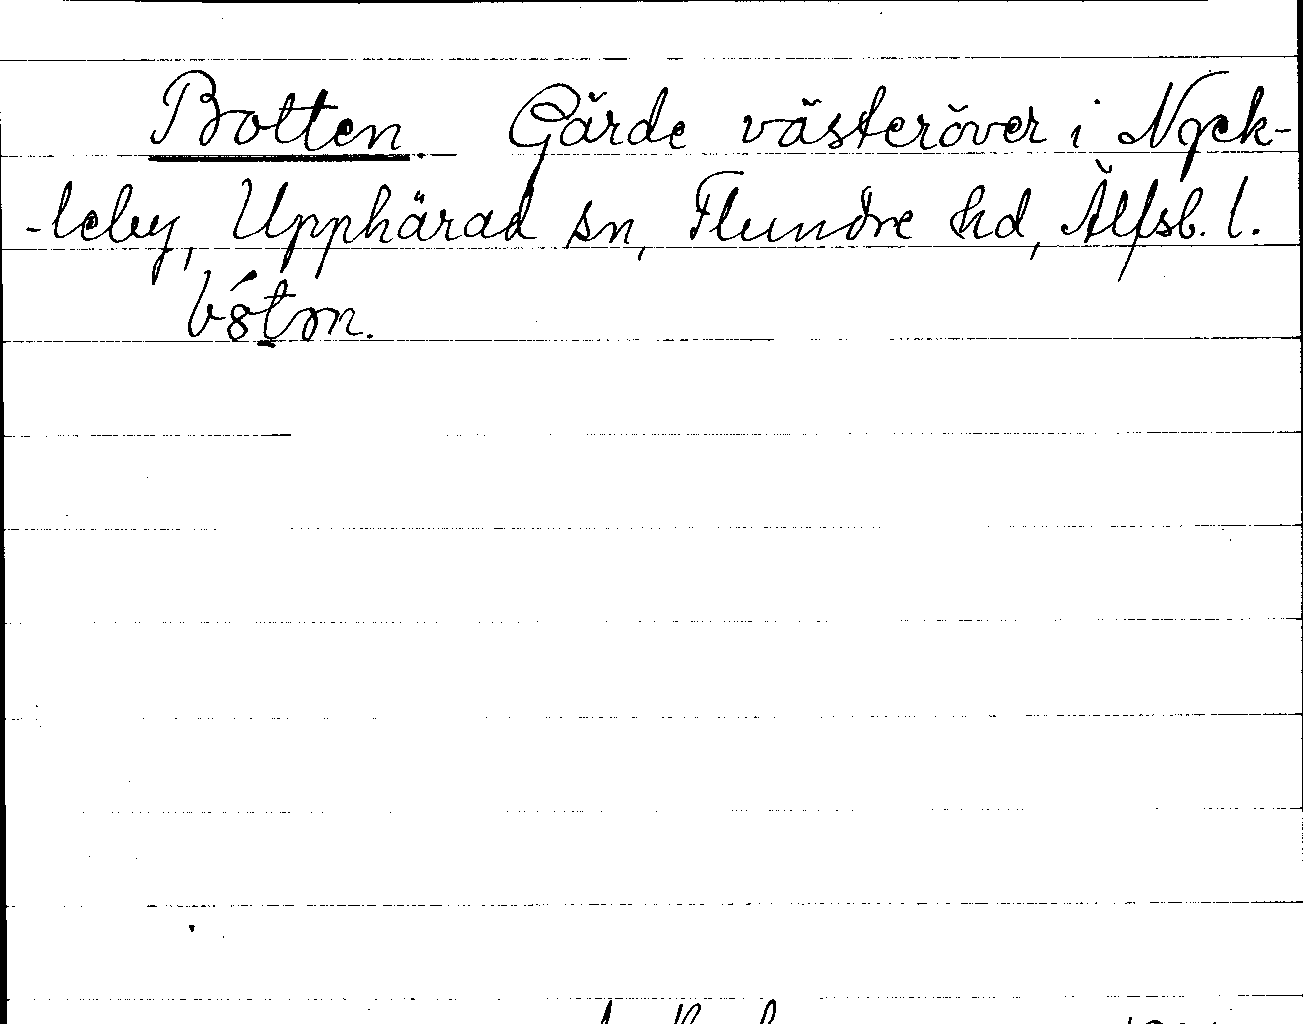 Botten. Gärde västeröver i Nyck-
-leby, Upphärad sn, Flundre hd, Älfsb. l.